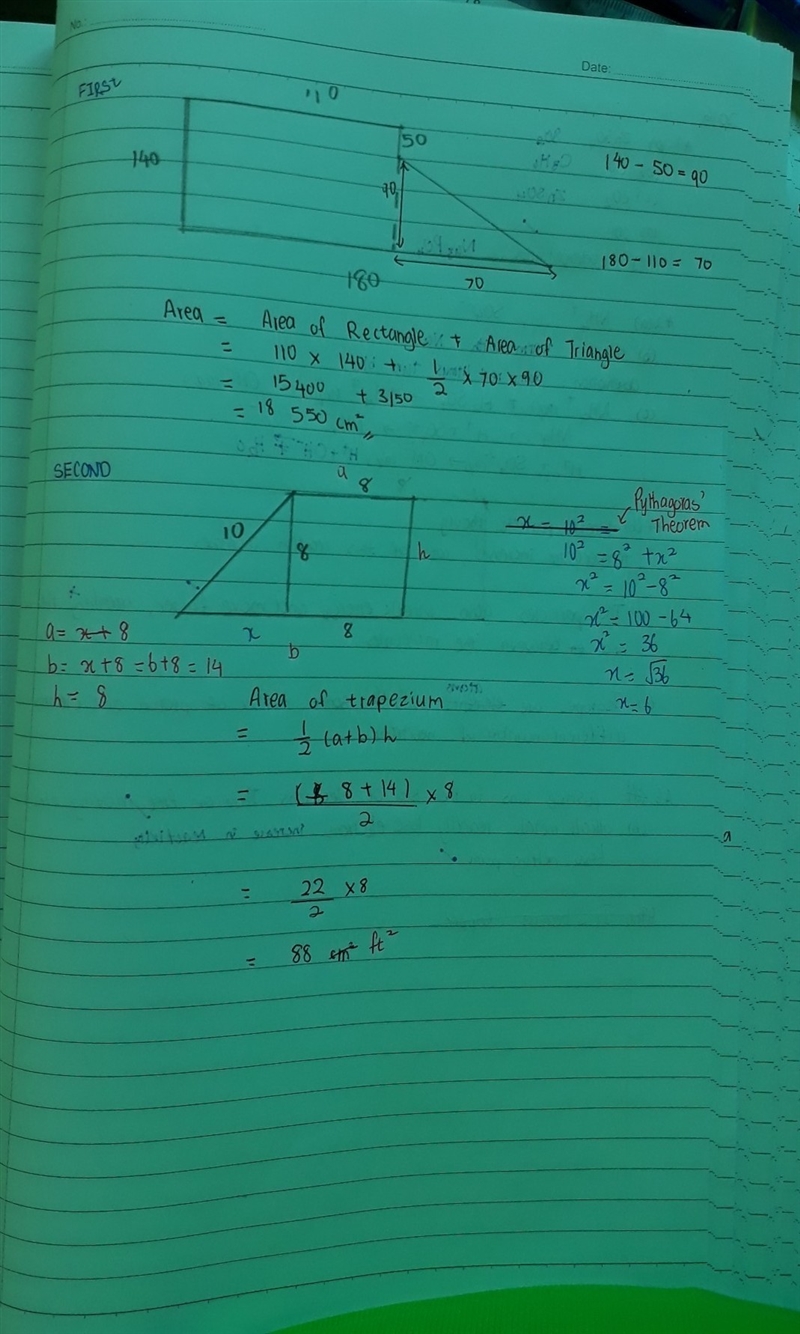 No.:
Date:
FIRST
110
140
50
140 - 50 = 90
90
180 - 110 = 70
180
70
Area = Area of Rectangle + Area of Triangle
= 110 x 140 + 1/2 x 70 x 90
= 15400 + 3150
= 18 550 cm²
SECOND
a
8
x - 10² =
Pythagoras'
Theorem
10
8
h
10² = 8² + x²
x² = 10² - 8²
x² = 100 - 64
x² = 36
x = √36
x = 6
x
8
b
a = x + 8
b = x + 8 = 6 + 8 = 14
h = 8
Area of trapezium
= 1/2 (a+b) h
= (8 + 14)/2 x 8
= 22/2 x 8
= 88 cm² ft²